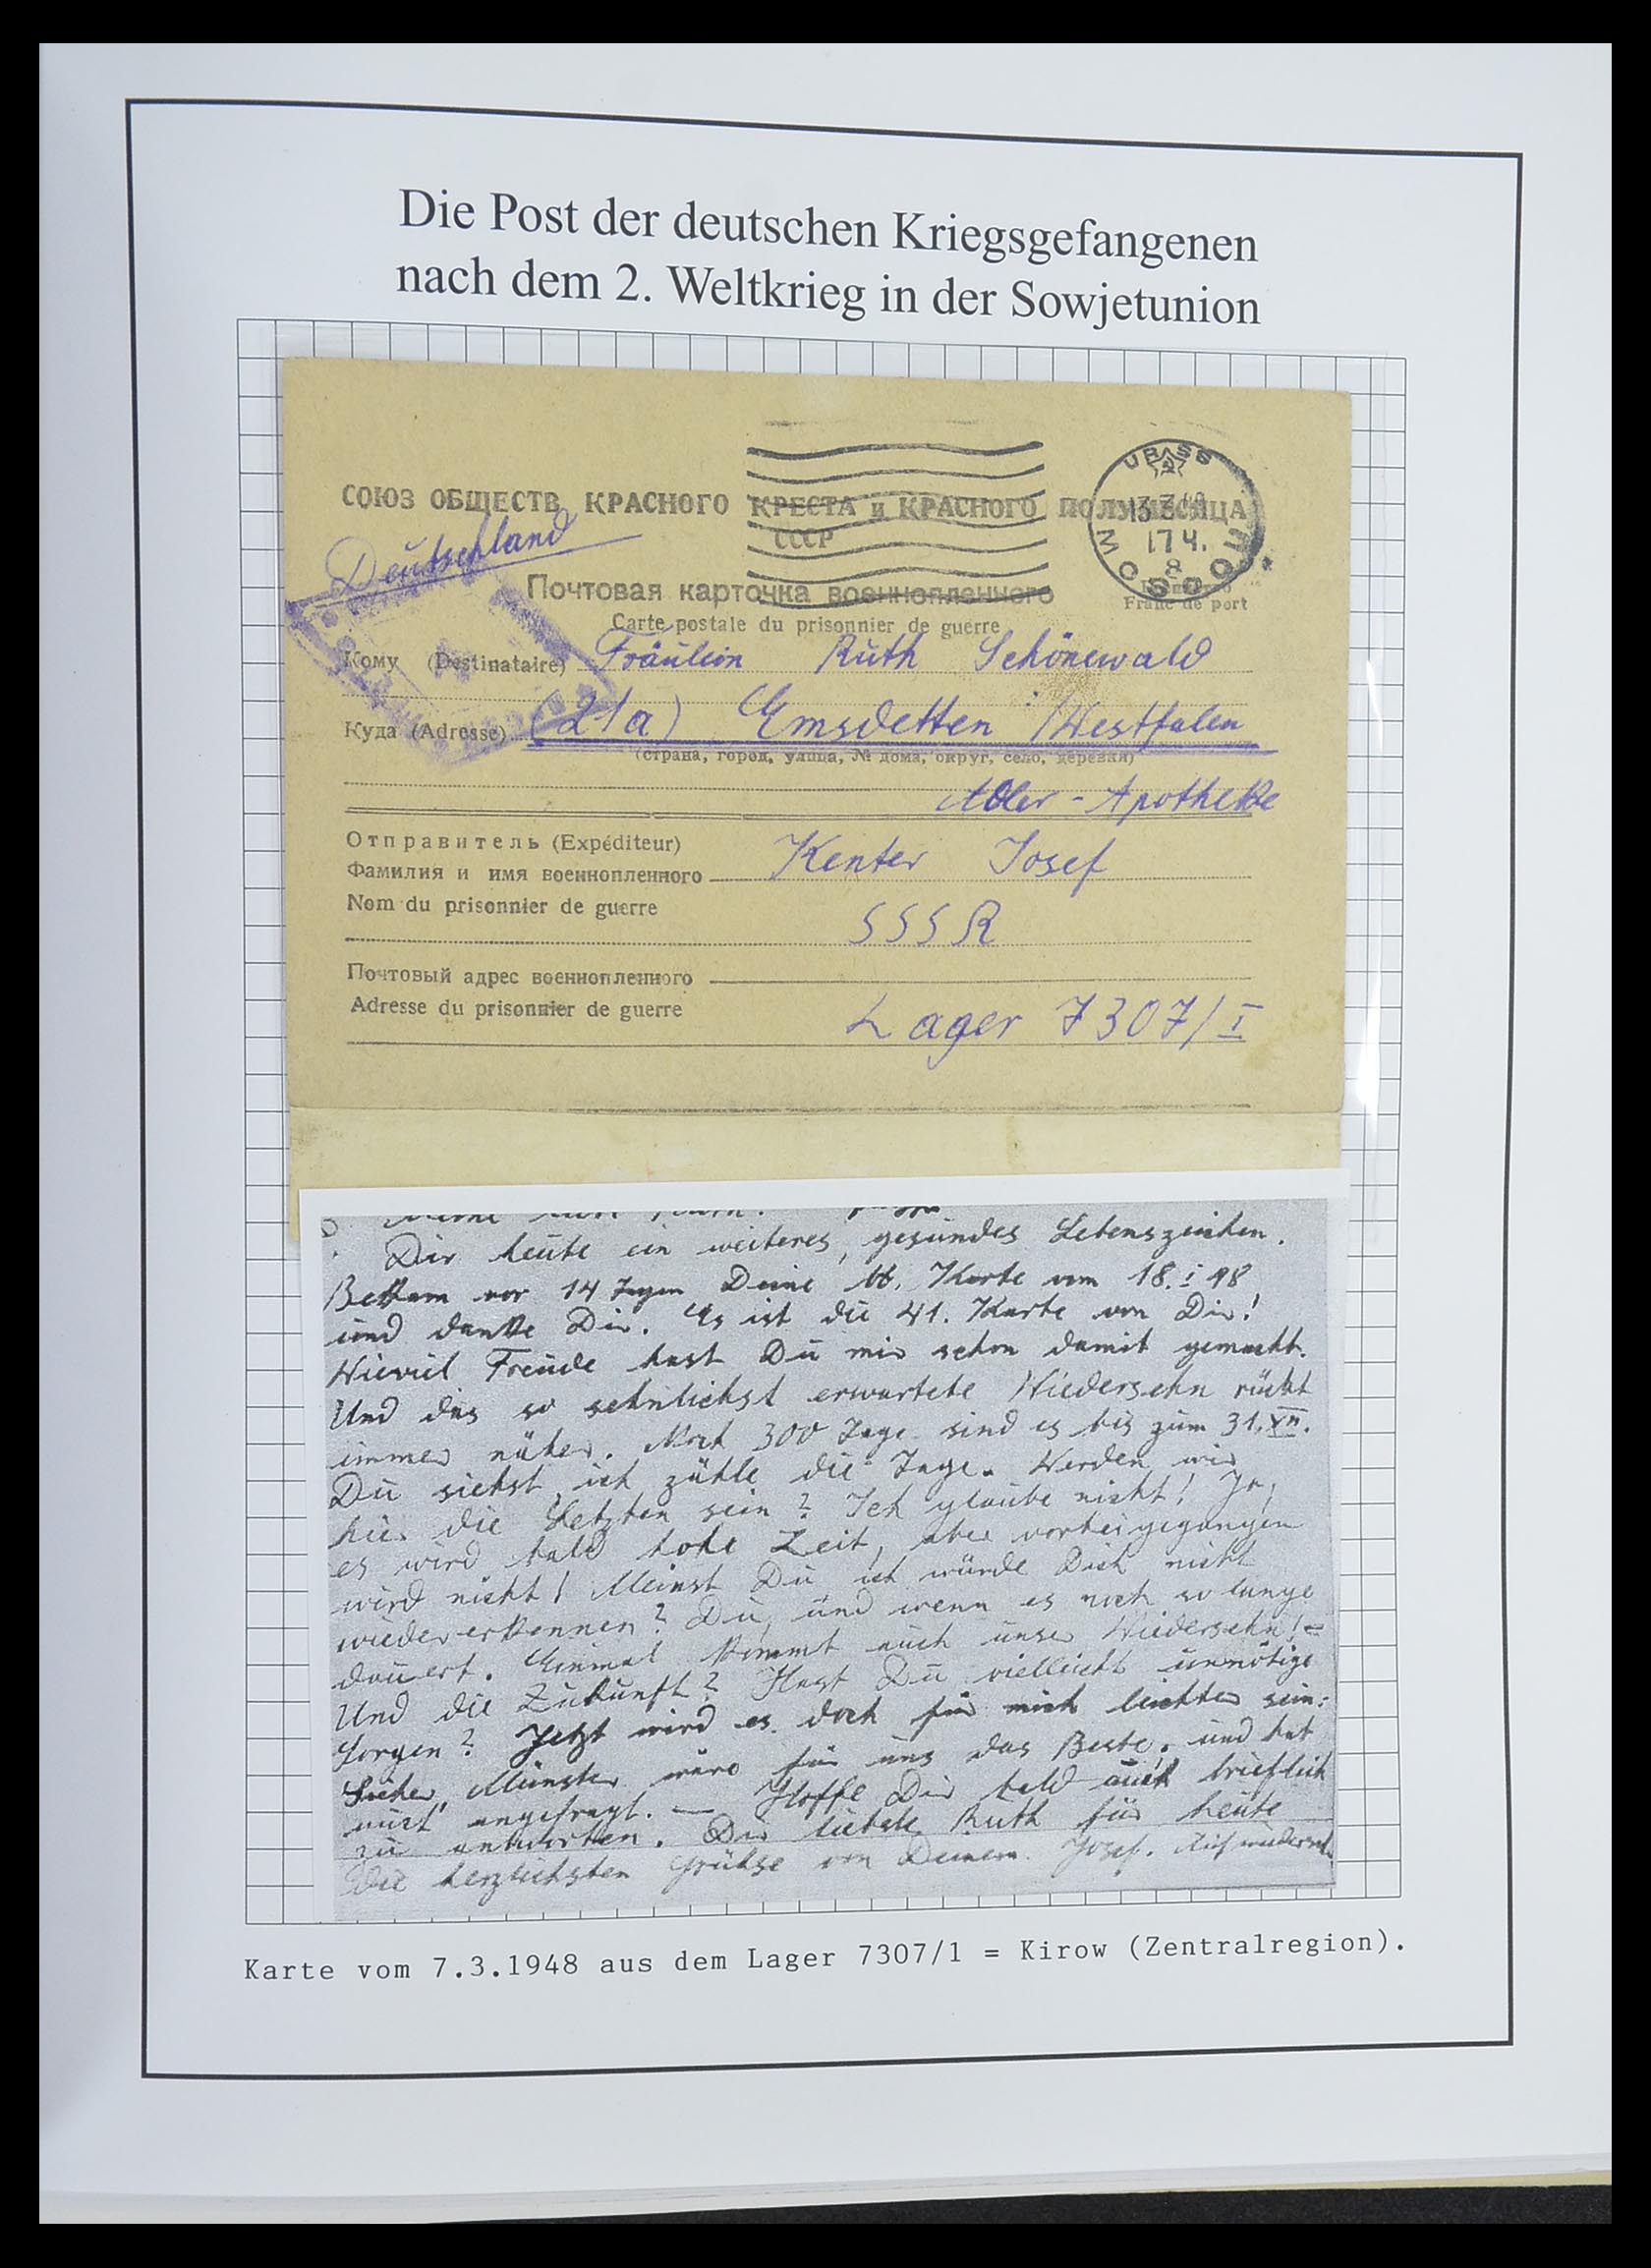 Die Post der deutschen Kriegsgefangenen
nach dem 2. Weltkrieg in der Sowjetunion
СОЮЗ ОБЩЕСТВ КРАСНОГО КРЕСТА и КРАСНОГО ПОЛУМЕСЯЦА
СССР
Deutschland
Почтовая карточка военнопленного
Carte postale du prisonnier de guerre
Franc de port
Кому (Destinataire) Fräulein Ruth Schönewald
Куда (Adresse) (21a) Emsdetten / Westfalen
(страна, город, улица, № дома, округ, село, деревня)
Adler - Apotheke
Отправитель (Expéditeur)
Фамилия и имя военнопленного Kenter Josef
Nom du prisonnier de guerre
SSSR
Почтовый адрес военнопленного
Adresse du prisonnier de guerre
Lager 7307/I
Dir heute ein weiteres, gesundes Lebenszeichen.
Bekam vor 14 Tagen Deine Karte vom 18. I 48
und danke Dir. Es ist die 41. Karte von Dir!
Wieviel Freude hast Du mir schon damit gemacht.
Und das so sehnlichst erwartete Wiedersehn rückt
immer näher. Noch 300 Tage sind es bis zum 31. XII.
Du siehst, ich zähle die Tage. Werden wir
hier die Letzten sein? Ich glaube nicht! Ja,
es wird bald hohe Zeit, aber vorbeigegangen
wird nicht! Meinst Du, ich würde Dich nicht
wiedererkennen? Du, und wenn es noch so lange
dauert. Einmal kommt auch unser Wiedersehn! -
Und die Zukunft? Hast Du vielleicht unnötige
Sorgen? Jetzt wird es doch für mich leichter sein:
Sicher, Münster wäre für uns das Beste. und hat
angefragt. — Hoffe Dir bald auch brieflich
zu antworten. Dir liebste Ruth für heute
die herzlichsten Grühse von Deinem Josef. Auf wiedersehn
Karte vom 7.3.1948 aus dem Lager 7307/1 = Kirow (Zentralregion).